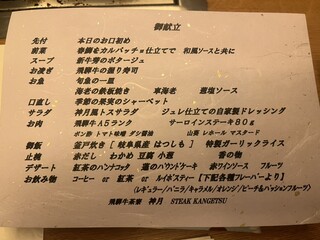 御献立
先付 本日のお口初め
前菜 春鯛をカルパッチョ仕立てで 和風ソースと共に
スープ 新牛蒡のポタージュ
お凌ぎ 飛騨牛の握り寿司
お魚 旬魚の一皿
海老の鉄板焼き 車海老 葱塩ソース
口直し 季節の果実のシャーベット
サラダ 神月風トスサラダ ジュレ仕立ての自家製ドレッシング
お肉 飛騨牛A5ランク サーロインステーキ80g
ポン酢 トマト味噌 ダシ醤油 山葵 レホール マスタード
御飯 釜戸炊き[岐阜県産 はつしも] 特製ガーリックライス
止椀 赤だし わかめ 豆腐 小葱 香の物
デザート 紅茶のパンナコッタ 苺のハウンドケーキ 赤ワインソース フルーツ
お飲み物 コーヒー or 紅茶 or ルイボスティー【下記各種フレーバーより】
(レギュラー/バニラ/キャラメル/オレンジ/ピーチ&パッションフルーツ)
飛騨牛茶寮 神月 STEAK KANGETSU